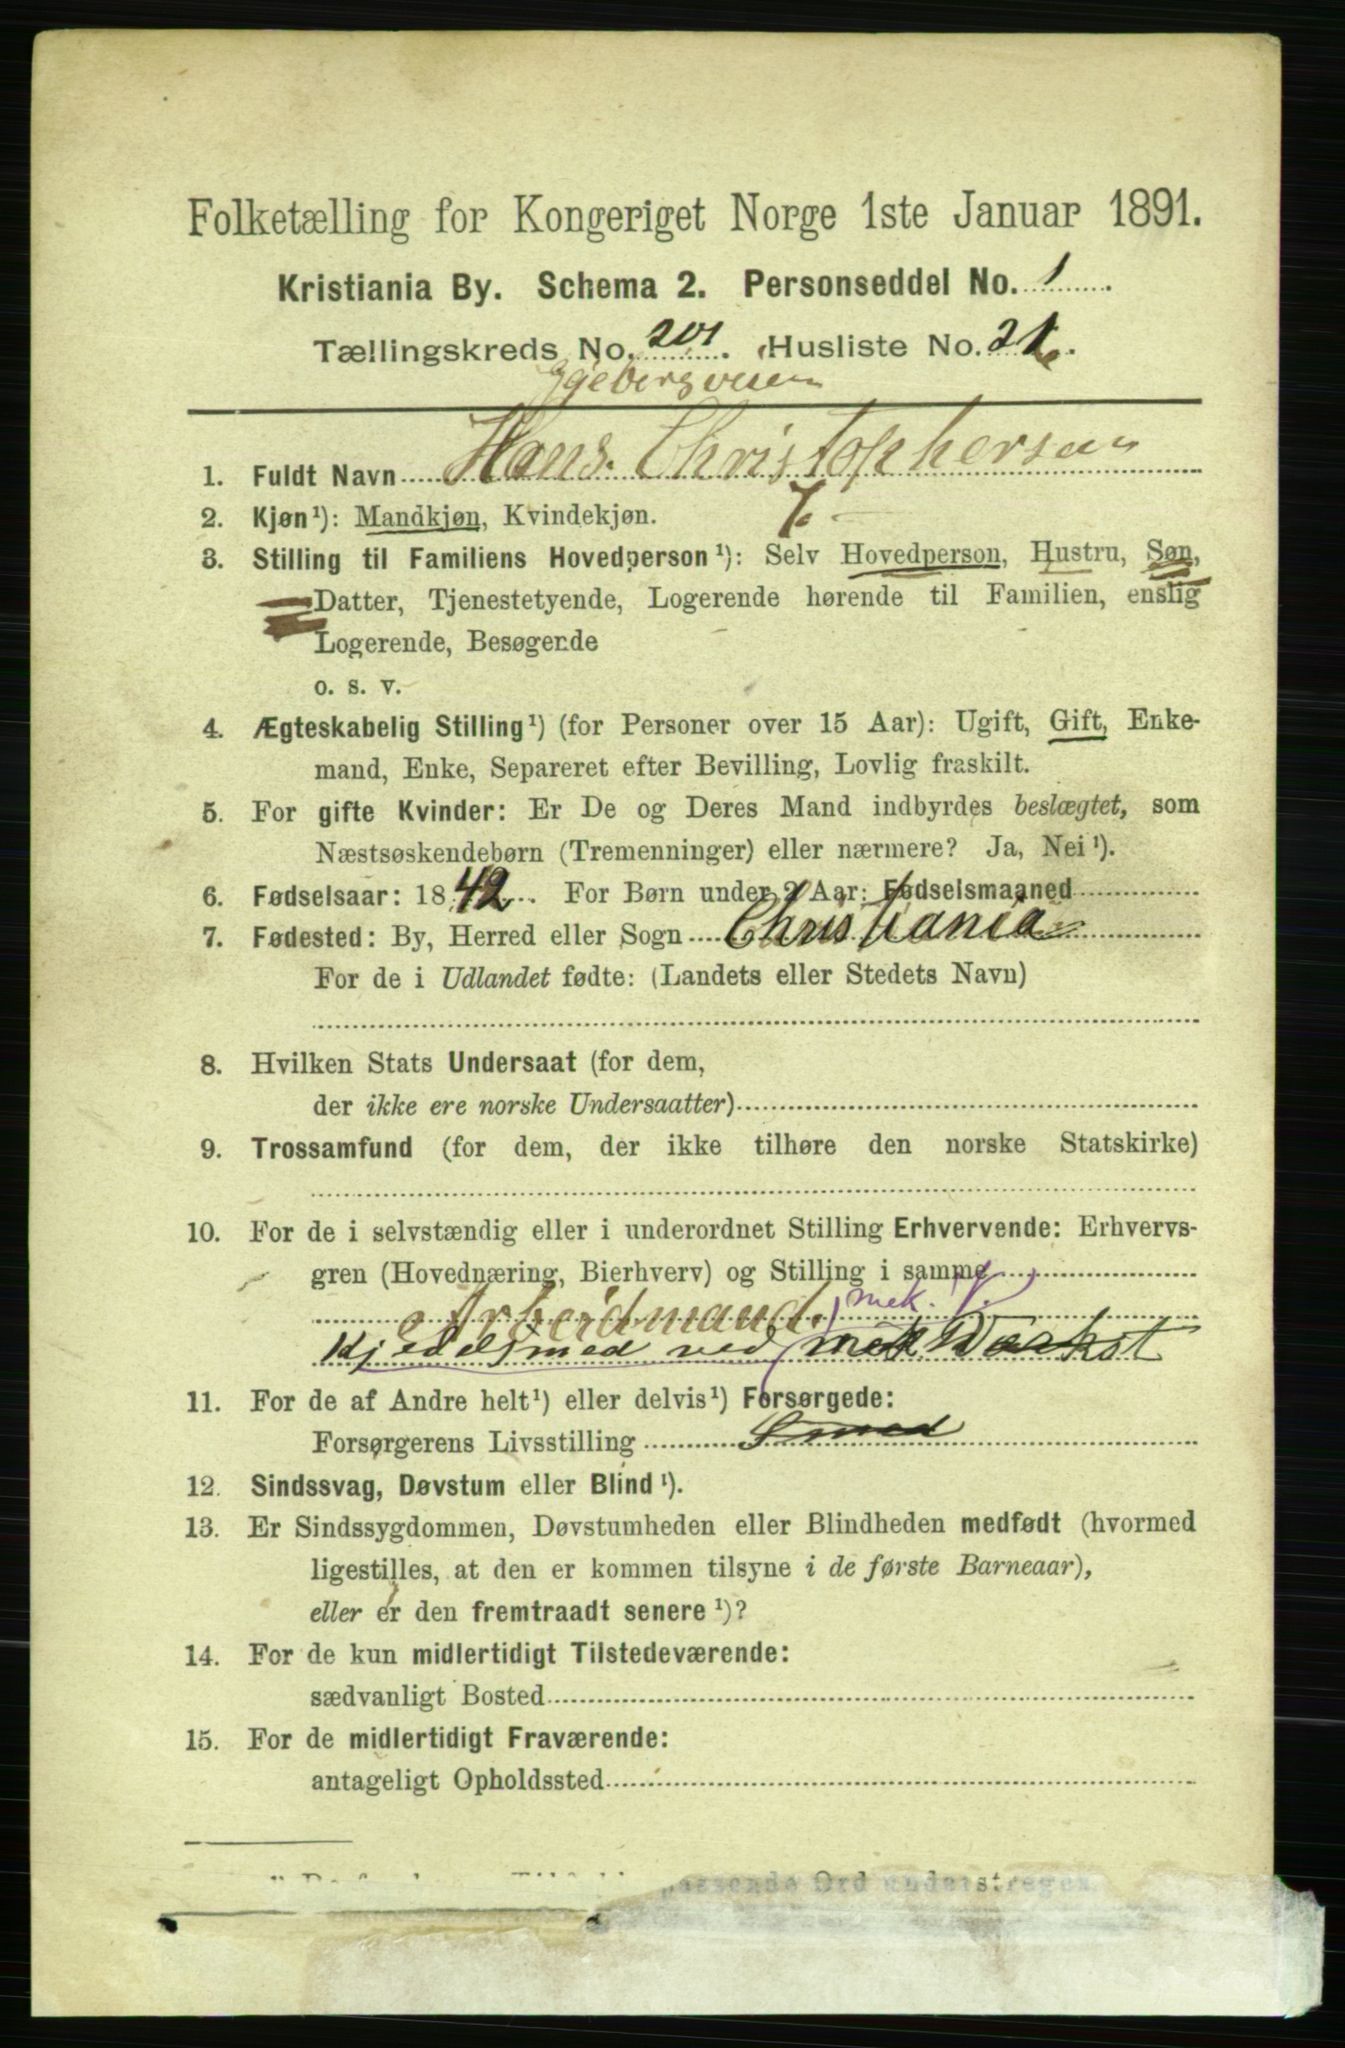 Folketælling for Kongeriget Norge 1ste Januar 1891.
Kristiania By. Schema 2. Personseddel No. 1.
Tællingskreds No. 201. Husliste No. 21
1. Fuldt Navn Hans. Christophersen
2. Kjøn¹): Mandkjøn, Kvindekjøn.
3. Stilling til Familiens Hovedperson¹): Selv Hovedperson, Hustru, Søn,
Datter, Tjenestetyende, Logerende hørende til Familien, enslig
Logerende, Besøgende
o. s. v.
4. Ægteskabelig Stilling¹) (for Personer over 15 Aar): Ugift, Gift, Enke-
mand, Enke, Separeret efter Bevilling, Lovlig fraskilt.
5. For gifte Kvinder: Er De og Deres Mand indbyrdes beslægtet, som
Næstsøskendebørn (Tremenninger) eller nærmere? Ja, Nei¹).
6. Fødselsaar: 1842. For Børn under 2 Aar: Fødselsmaaned
7. Fødested: By, Herred eller Sogn Christiania
For de i Udlandet fødte: (Landets eller Stedets Navn)
8. Hvilken Stats Undersaat (for dem,
der ikke ere norske Undersaatter)
9. Trossamfund (for dem, der ikke tilhøre den norske Statskirke)
10. For de i selvstændig eller i underordnet Stilling Erhvervende: Erhvervs-
gren (Hovednæring, Bierhverv) og Stilling i samme
Arbeidmand. mek. V.
Kjedelsmed ved mek Værkst
11. For de af Andre helt¹) eller delvis¹) Forsørgede:
Forsørgerens Livsstilling Smed
12. Sindssvag, Døvstum eller Blind¹).
13. Er Sindssygdommen, Døvstumheden eller Blindheden medfødt (hvormed
ligestilles, at den er kommen tilsyne i de første Barneaar),
eller er den fremtraadt senere¹)?
14. For de kun midlertidigt Tilstedeværende:
sædvanligt Bosted
15. For de midlertidigt Fraværende:
antageligt Opholdssted
passende Ord understreges.